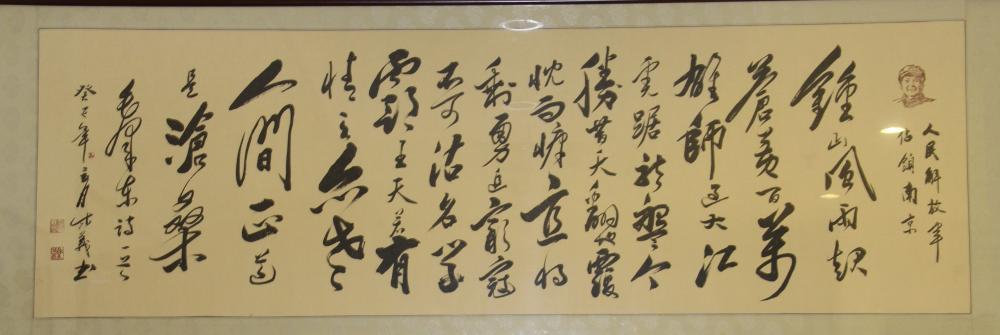 人民解放军
佔領南京
鍾山風雨起
蒼黄百萬
雄師过大江
虎踞龙盤今
勝昔天翻地覆
慨而慷宜将
剩勇追窮寇
不可沽名学
霸王天若有
情天亦老
人間正道
是滄桑
毛澤东诗一首
癸巳年月義书